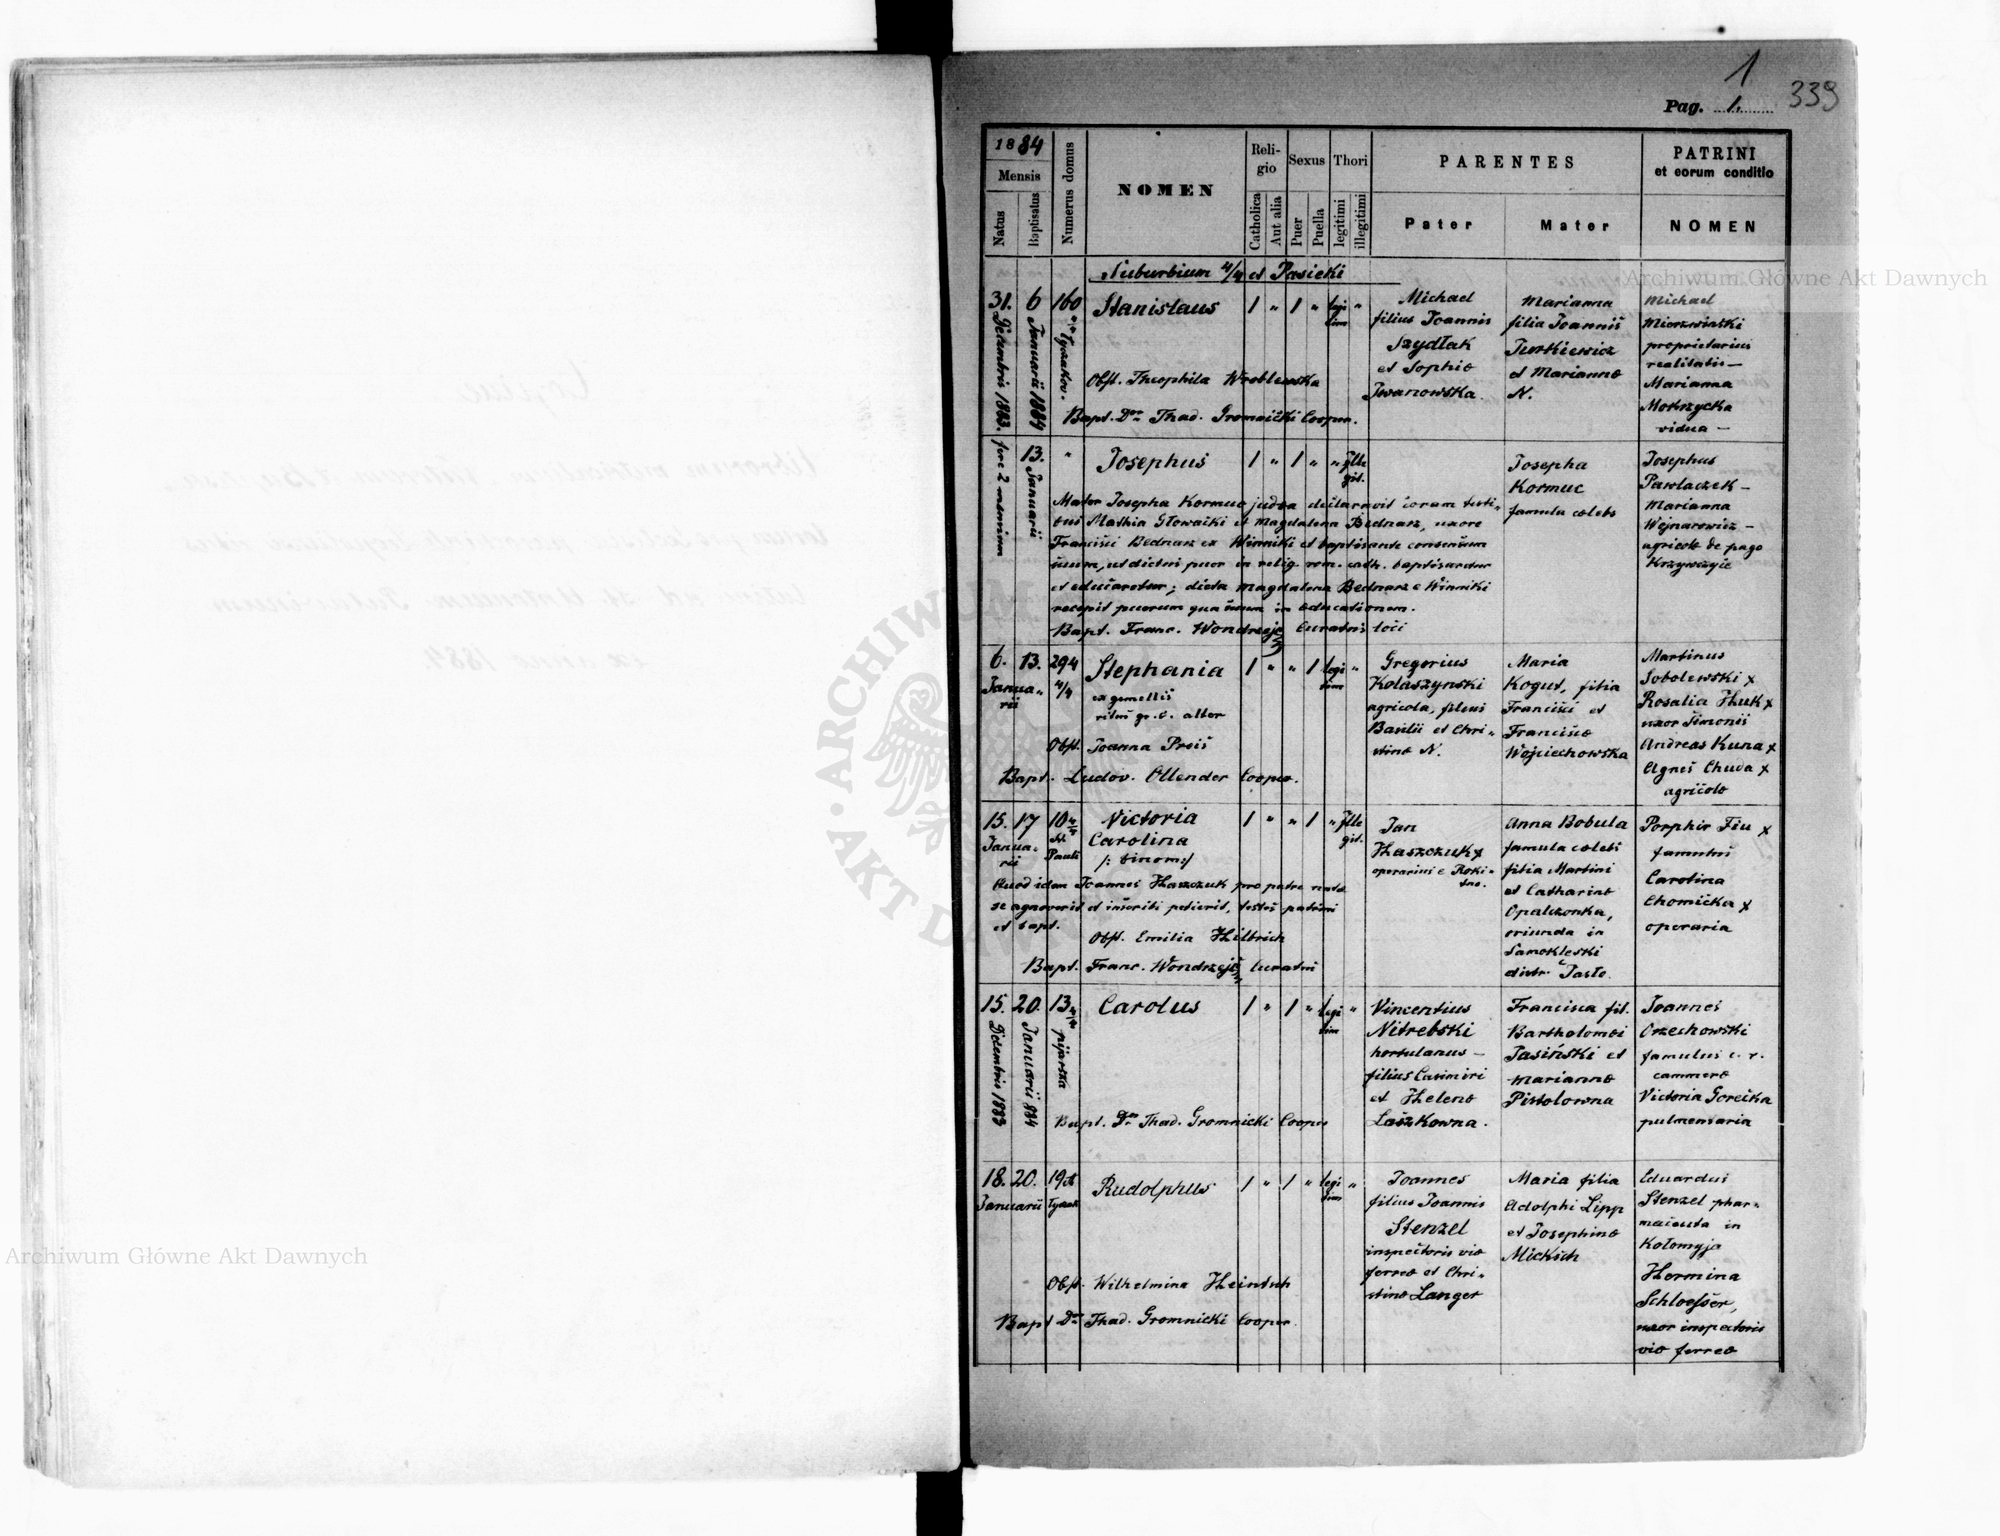 1
339
Pag. 1.
1884
Mensis
Natus
Baptisatus
Numerus domus
NOMEN
Religio
Catholica
Aut alia
Sexus
Puer
Puella
Thori
legitimi
illegitimi
PARENTES
Pater
Mater
PATRINI
et eorum conditio
NOMEN
Archiwum Główne Akt Dawnych
Suburbium 4/4 et Pasieki
31. Decembris 1883.
6 Januarii 1884
160
Stanislaus
1 " 1 " legi
tim "
Obst. Theophila Wroblewska
Bapt. Dr. Thad. Gromnicki Cooper.
Michael
filius Joannis
Szydłak
et Sophiae
Iwanowska
Marianna
filia Joannis
Turkiewicz
et Mariannae
N.
Michael
Mierzwiński
proprietarius
realitatis –
Marianna
Mokrzycka
vidua –
fere 2 mensium
13. Januarii
"
Josephus
1 " 1 " " Ille
git.
Mater Josepha Kormuc judea declaravit coram testi-
bus Mathia Głowacki et Magdalena Bednarz, uxore
Francisci Bednarz ex Winniki et baptisante consensum
suum, ut dictus puer in relig. rom. cath. baptisaretur
et educaretur; dicta Magdalena Bednarz e Winniki
recepit puerum qua suum in educationem.
Bapt. Franc. Wondrzejc Curatus loci
Josepha
Kormuc
famula coelebs
Josephus
Pawlaczek –
Marianna
Wojnarowicz –
agricolae de pago
Krzywczyce
6. Janua-
rii
13.
294
4/4
Stephania
ex gemellis
ritus gr. c. alter
1 " " 1 legi
tim "
Obst. Joanna Preis
Bapt. Ludov. Ollender Cooper.
Gregorius
Kolaszynski
agricola, filius
Basilii et Chri-
stinae N.
Maria
Kogut, filia
Francisci et
Franciscae
Wojciechowska
Martinus
Sobolewski x
Rosalia Huk x
uxor Simonis
Andreas Kuna x
Agnes Chuda x
agricolae
15. Janua-
rii
17
10 4/4
St.
Pauli
Victoria
Carolina
/: binom:/
1 " " 1 " Ille
git.
Quod idem Joannes Haszczuk pro patre nato
se agnoverit et inscribi petierit, testes patrini
et bapt.
Obst. Emilia Hilbrich
Bapt. Franc. Wondrzejc Curatus
Jan
Haszczuk x
operarius e Roki-
tno.
Anna Bobula
famula coelebs
filia Martini
et Catharinae
Opalczonka,
oriunda in
Samokleski
distr. Jasło.
Porphir Fiu x
famulus
Carolina
Chomicka x
operaria
15. Decembris 1883
20. Januarii 884
13 4/4 pijarska
Carolus
1 " 1 " legi
tim "
Bapt. Dr. Thad. Gromnicki Cooper
Vincentius
Nitrebski
hortulanus –
filius Casimiri
et Helenae
Laszkowna.
Francisca fil.
Bartholomei
Jasiński et
Mariannae
Pistolowna
Joannes
Orzechowski
famulus c. r.
camerae
Victoria Gorecka
pulmentaria
18. 20.
Januarii
19
Rudolphus
1 " 1 " legi
tim "
Obst. Wilhelmina Heintsch
Bapt Dr. Thad. Gromnicki Cooper.
Joannes
filius Joannis
Stenzel
inspectoris viae
ferreae et Chri-
stinae Langer
Maria filia
Adolphi Lipp
et Josephinae
Micksch
Eduardus
Stenzel phar-
maceuta in
Kołomyja
Hermina
Schloesser,
uxor inspectoris
viae ferreae
Archiwum Główne Akt Dawnych
ARCHIWUM
AKT D